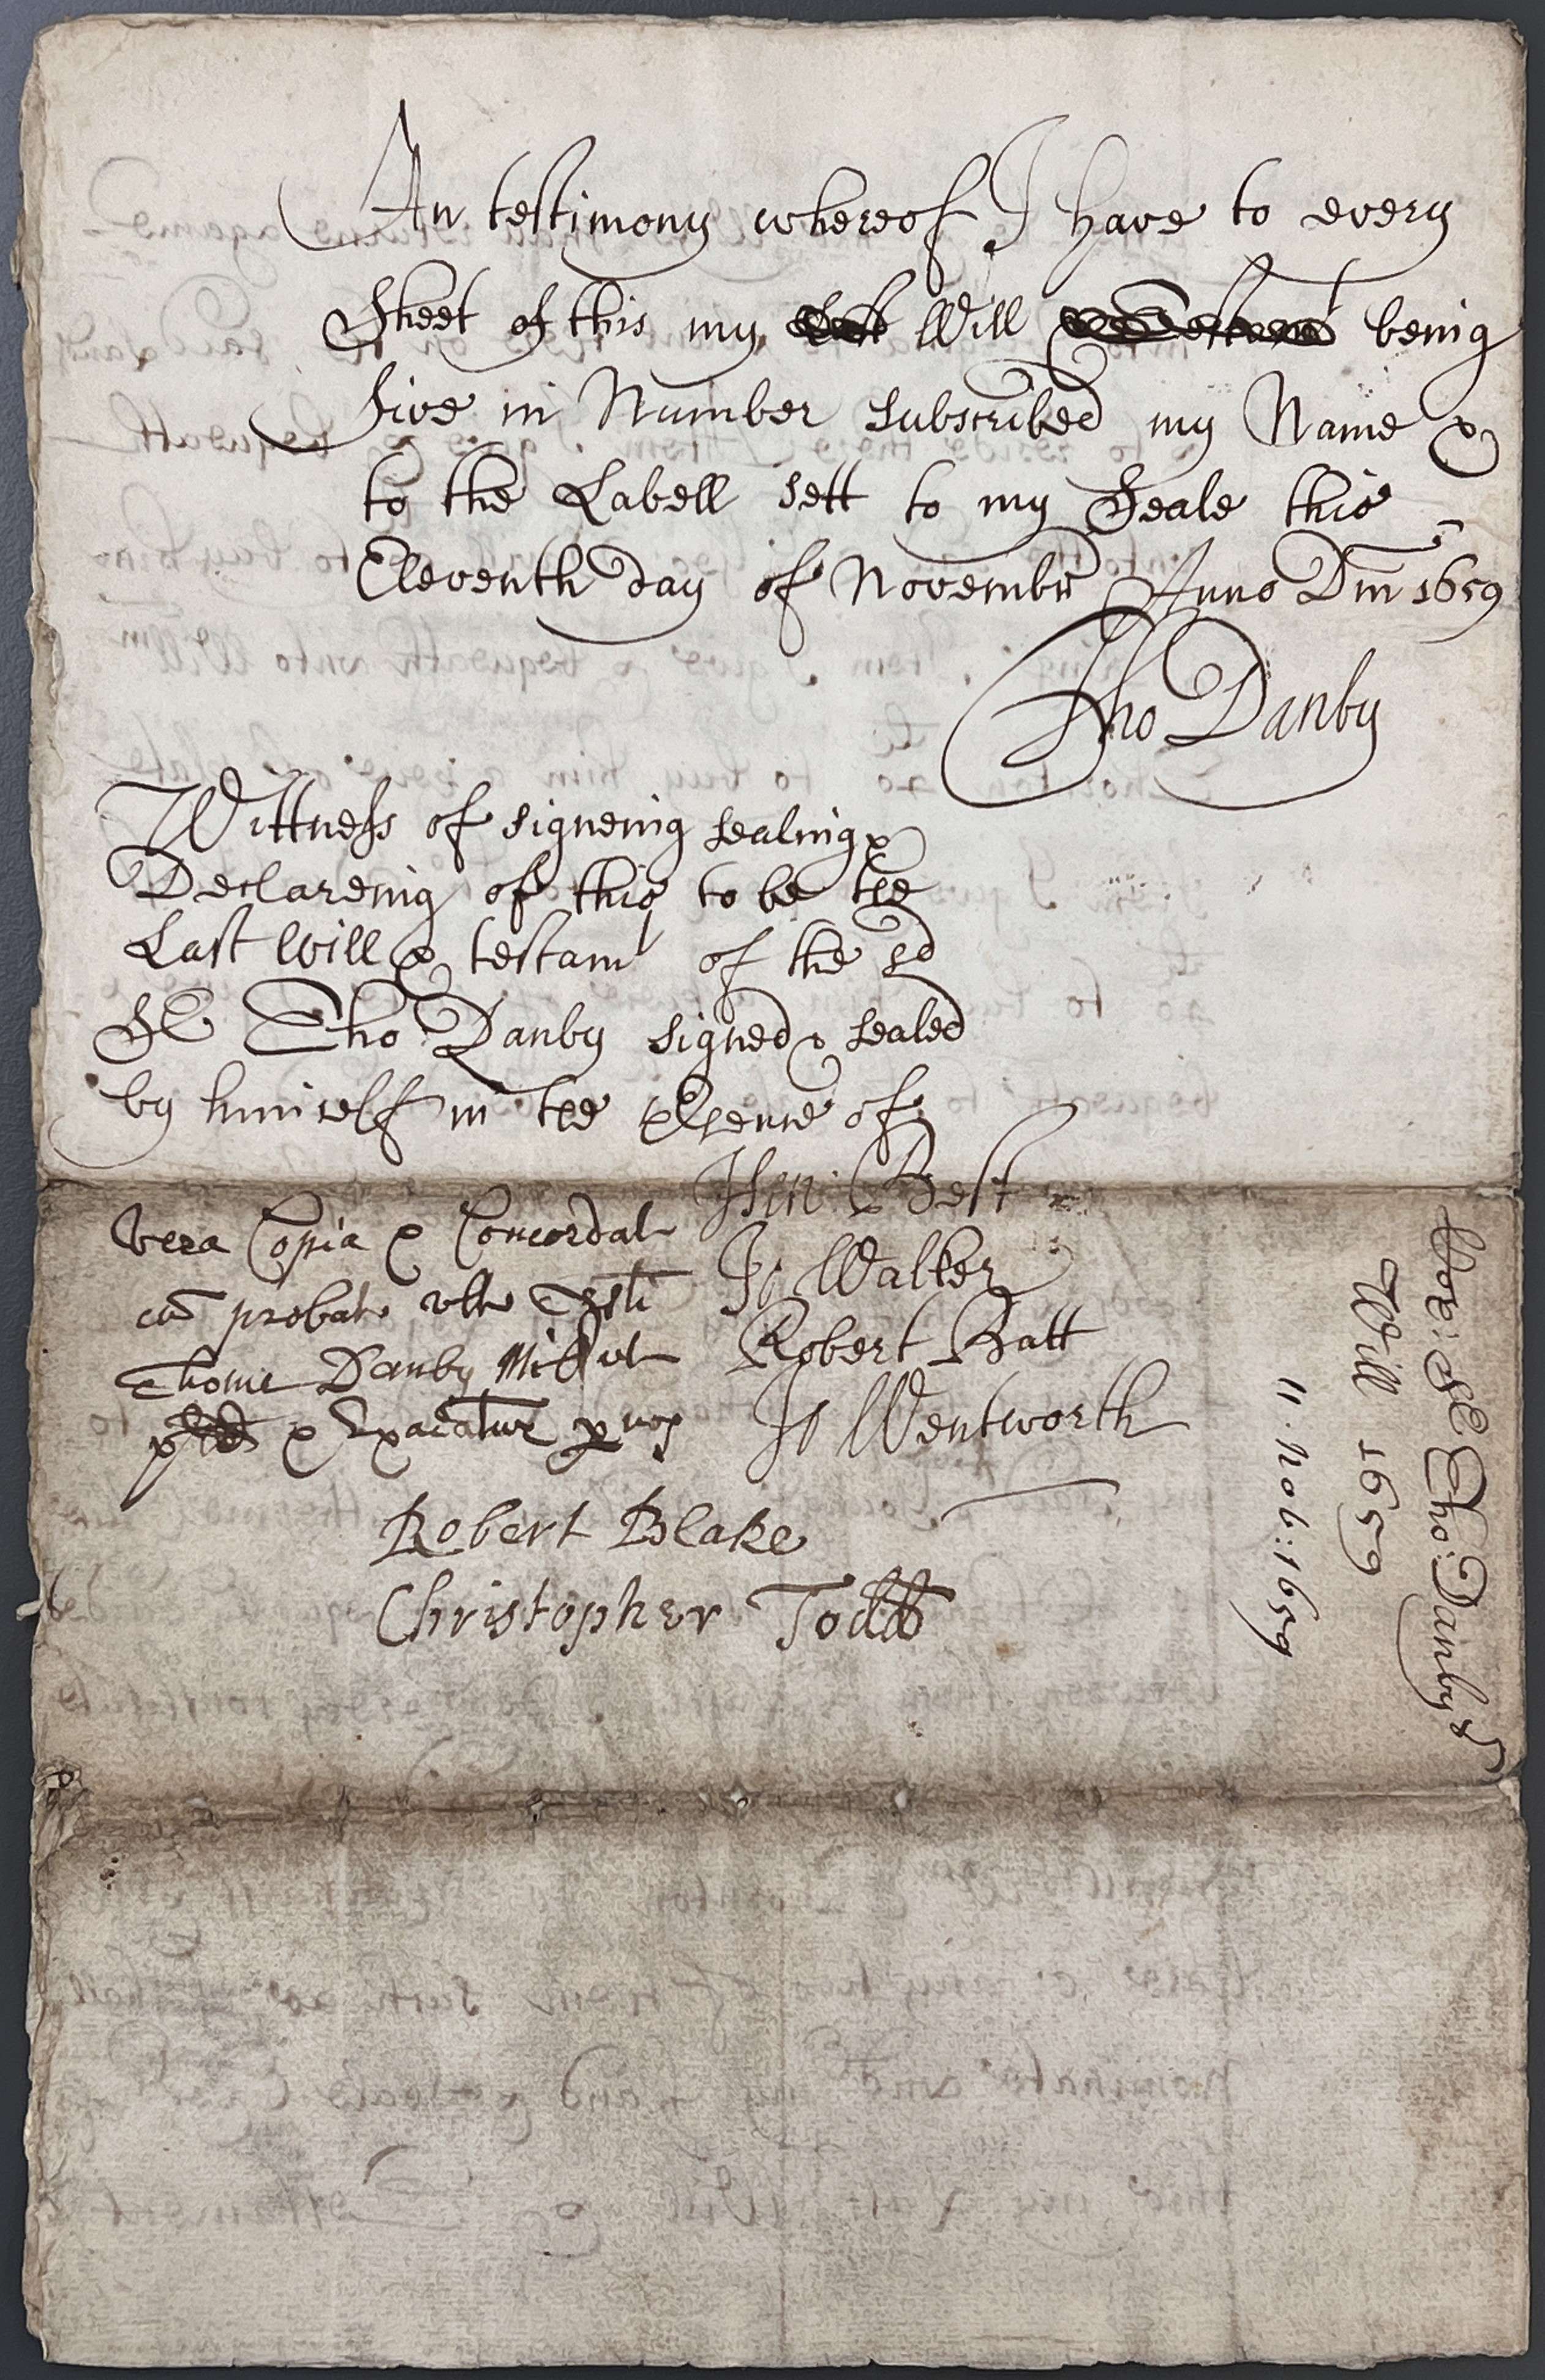 In testimony whereof I have to every
Sheet of this my Last Will & Testamt being
five in Number subscribed my Name &
to the Labell sett to my Seale this
Eleventh day of Novembr Anno Dm 1659
Tho Danby
Wittness of signeing sealing &
Declareing of this to be the
Last Will & testamt of the sd
Sr Tho Danby signed & sealed
by himself in the p'sence of
Hen: Best
Jo Walker
Robert Batt
Jo Wentworth
Vera Copia & Concordat
cu probat ult Testi
Thome Danby Mil
& Exaiatur p nos
Robert Blake
Christopher Todd
Cop: Sr Tho: Danbys
Will 1659
11. Nob: 1659